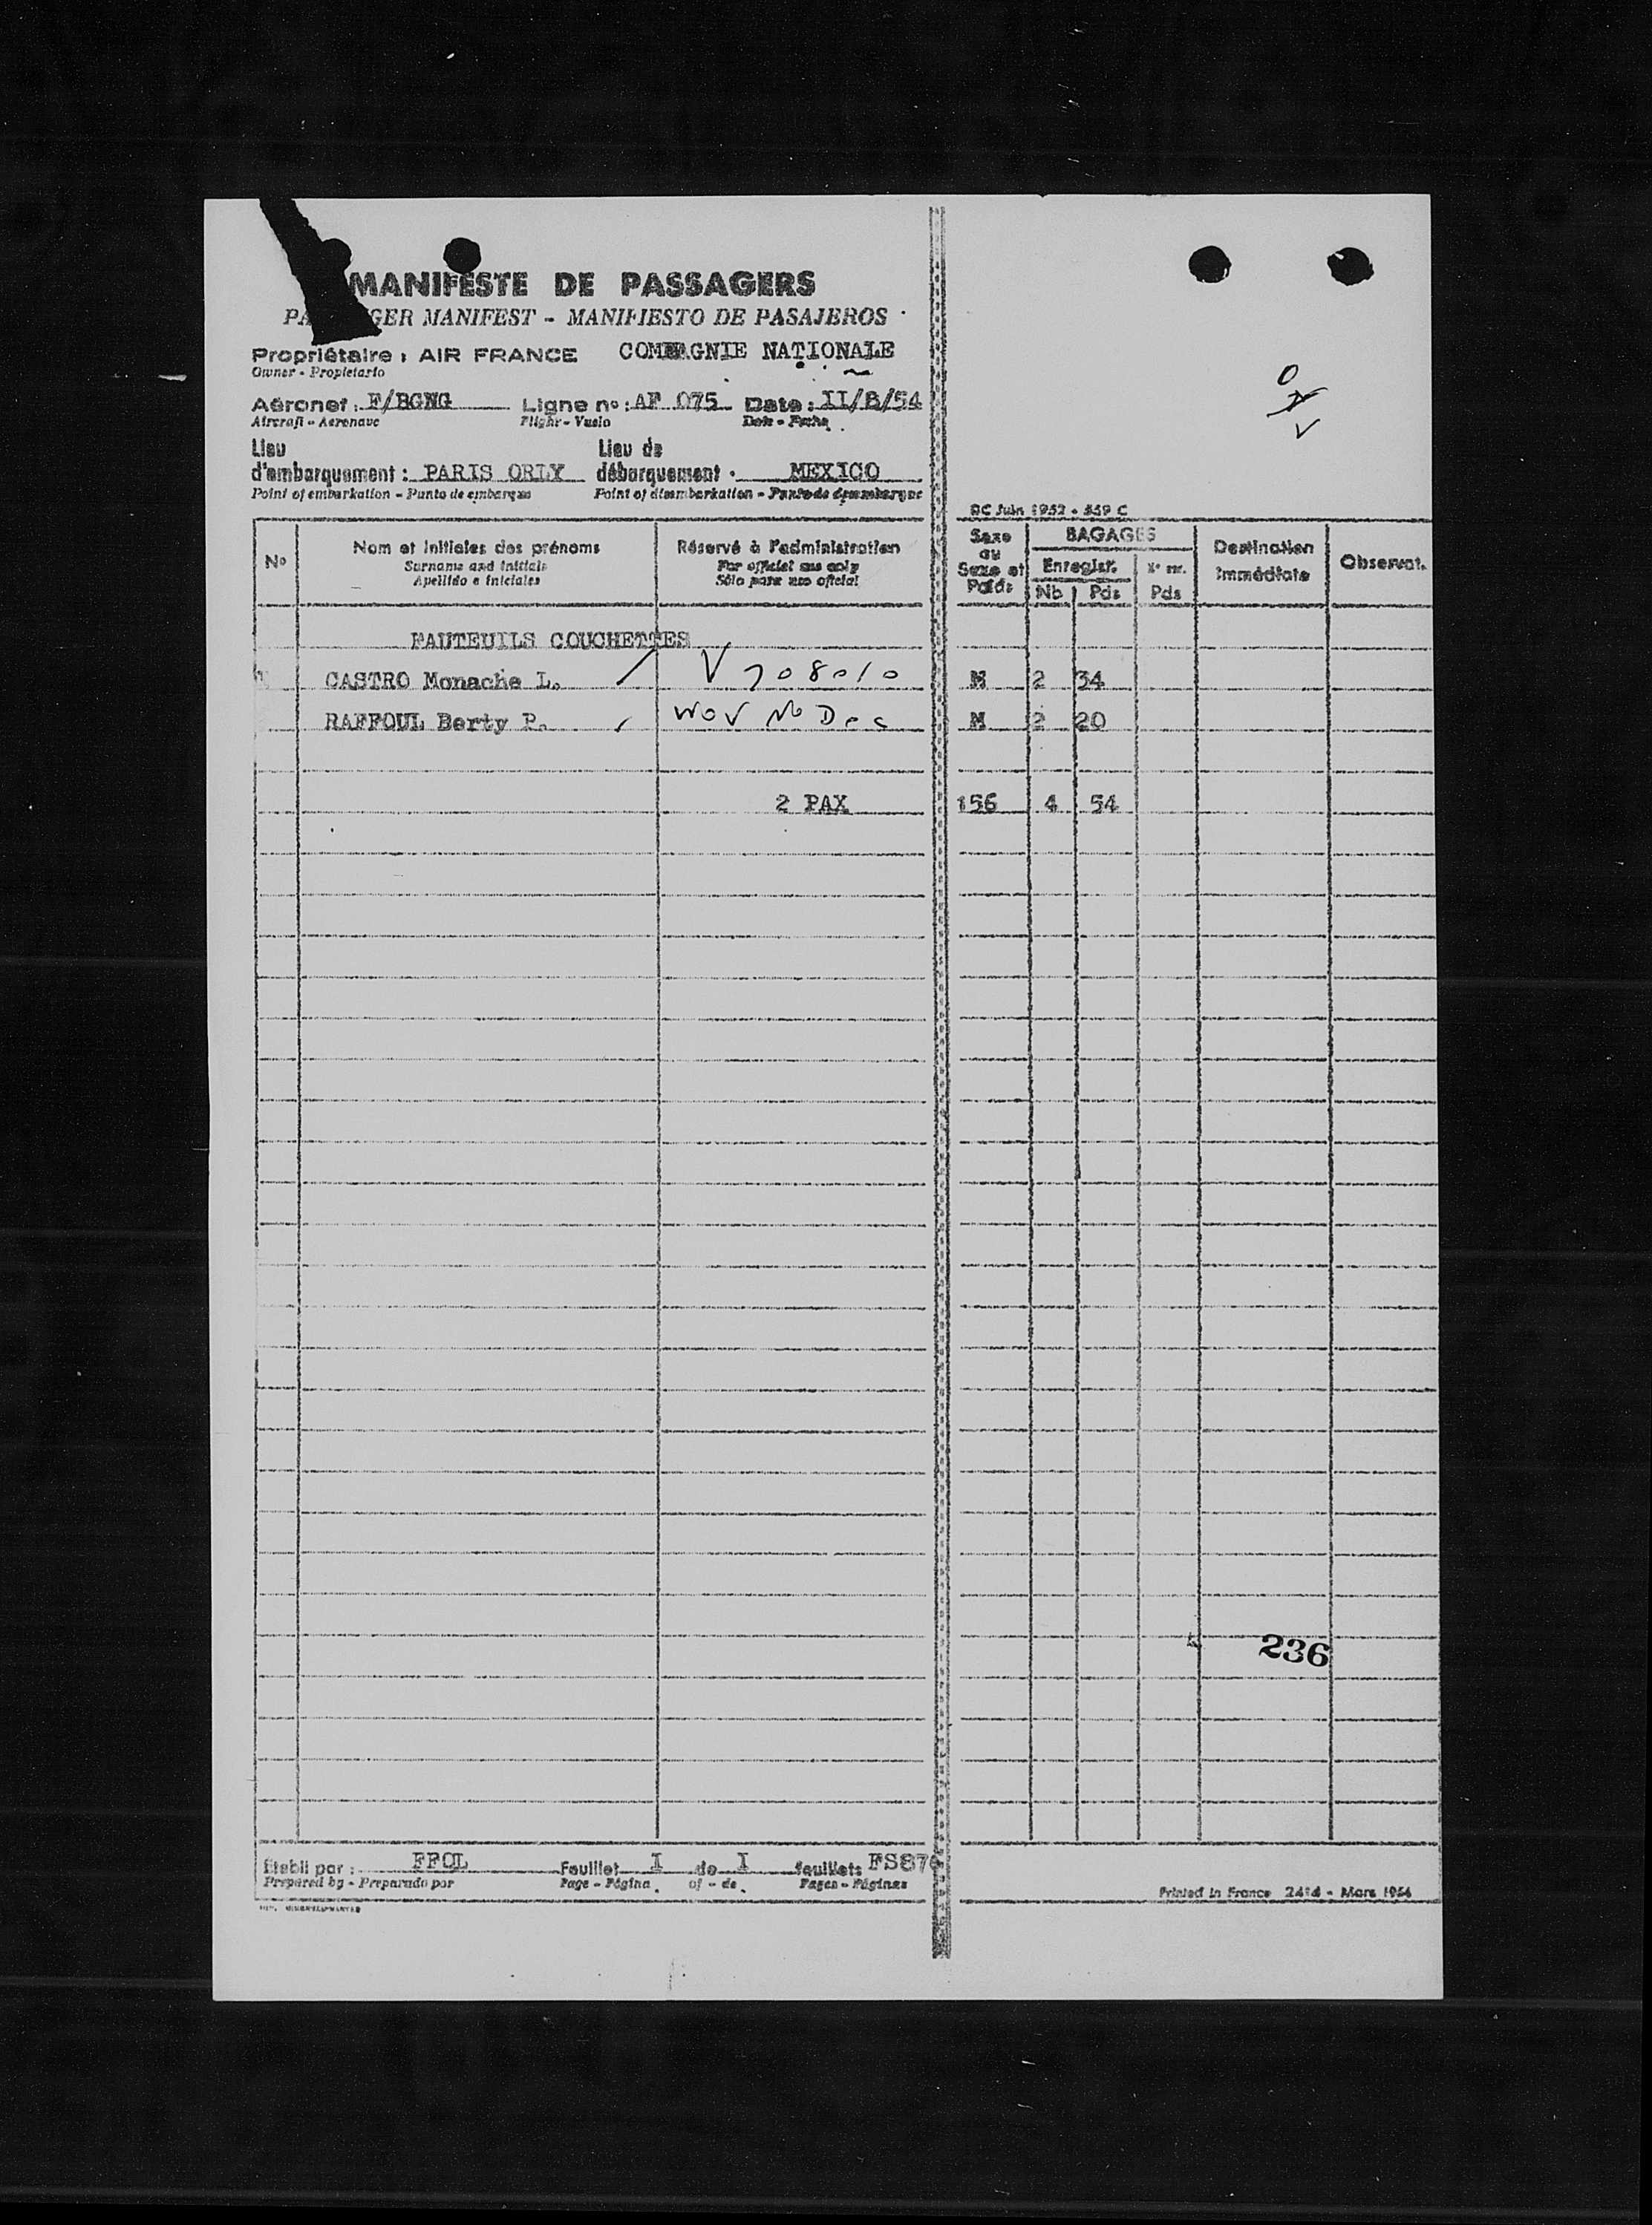 MANIFESTE DE PASSAGERS
GER MANIFEST - MANIFIESTO DE PASAJEROS
Propriétaire : AIR FRANCE COMPAGNIE NATIONALE
Owner - Propietario
Aéronef : F/BGNG Ligne n° : AF 075 Date : II/8/54
Aircraft - Aeronave Flight - Vuelo Date - Fecha
Lieu d'embarquement : PARIS ORLY Lieu de débarquement : MEXICO
Point of embarkation - Punto de embarque Point of disembarkation - Punto de desembarque
RC Juin 1952 - 559 C
N° Nom et initiales des prénoms Réservé à l'administration Sexe ou Sexe et Poids BAGAGES Destination immédiate Observat.
Surname and initials For official use only Enregistr.
Apellido e iniciales Sólo para uso oficial Nb Pds Pds
FAUTEUILS COUCHETTES
CASTRO Monache L. V 708010 M 2 34
RAFFOUL Berty P. WOV No Dec M 2 20
2 PAX 156 4 54
236
Établi par : FFOL Feuillet I de I feuillets
Prepared by - Preparado por Page - Página of - de Pages - Páginas
Printed in France 2414 - Mars 1954